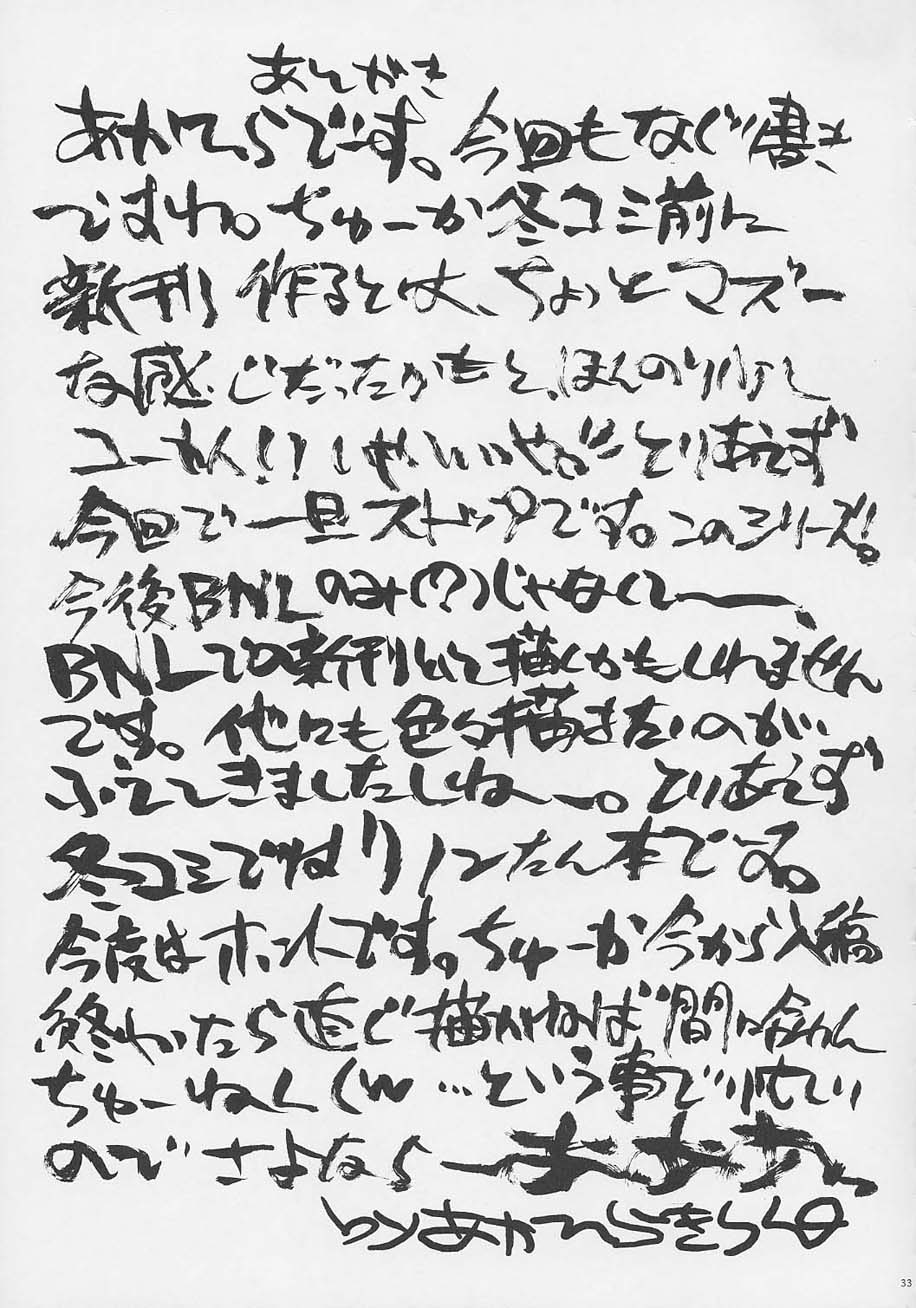 あとがき
あかてらです。今回もなぐり書き
ですね。ちゅーか冬コミ前に
新刊 作るとは、ちょっとマズー
な感じだったりもと、ほんのり
とりあえず
今回で一旦ストップです。このシリーズ!。
今後BNLのみ(?)じゃなくてー、
BNLでの新刊として描くかもしれません
です。他にも色々描きたいのが
ふえてきましたしねー。とりあえず
冬コミではリノンたん本でする。
今度はホントです。ちゅーか今から入稿
終わったら直ぐ描かねば間に合わん
ちゅーねん(w …という事で忙しい
のでさよなら
33